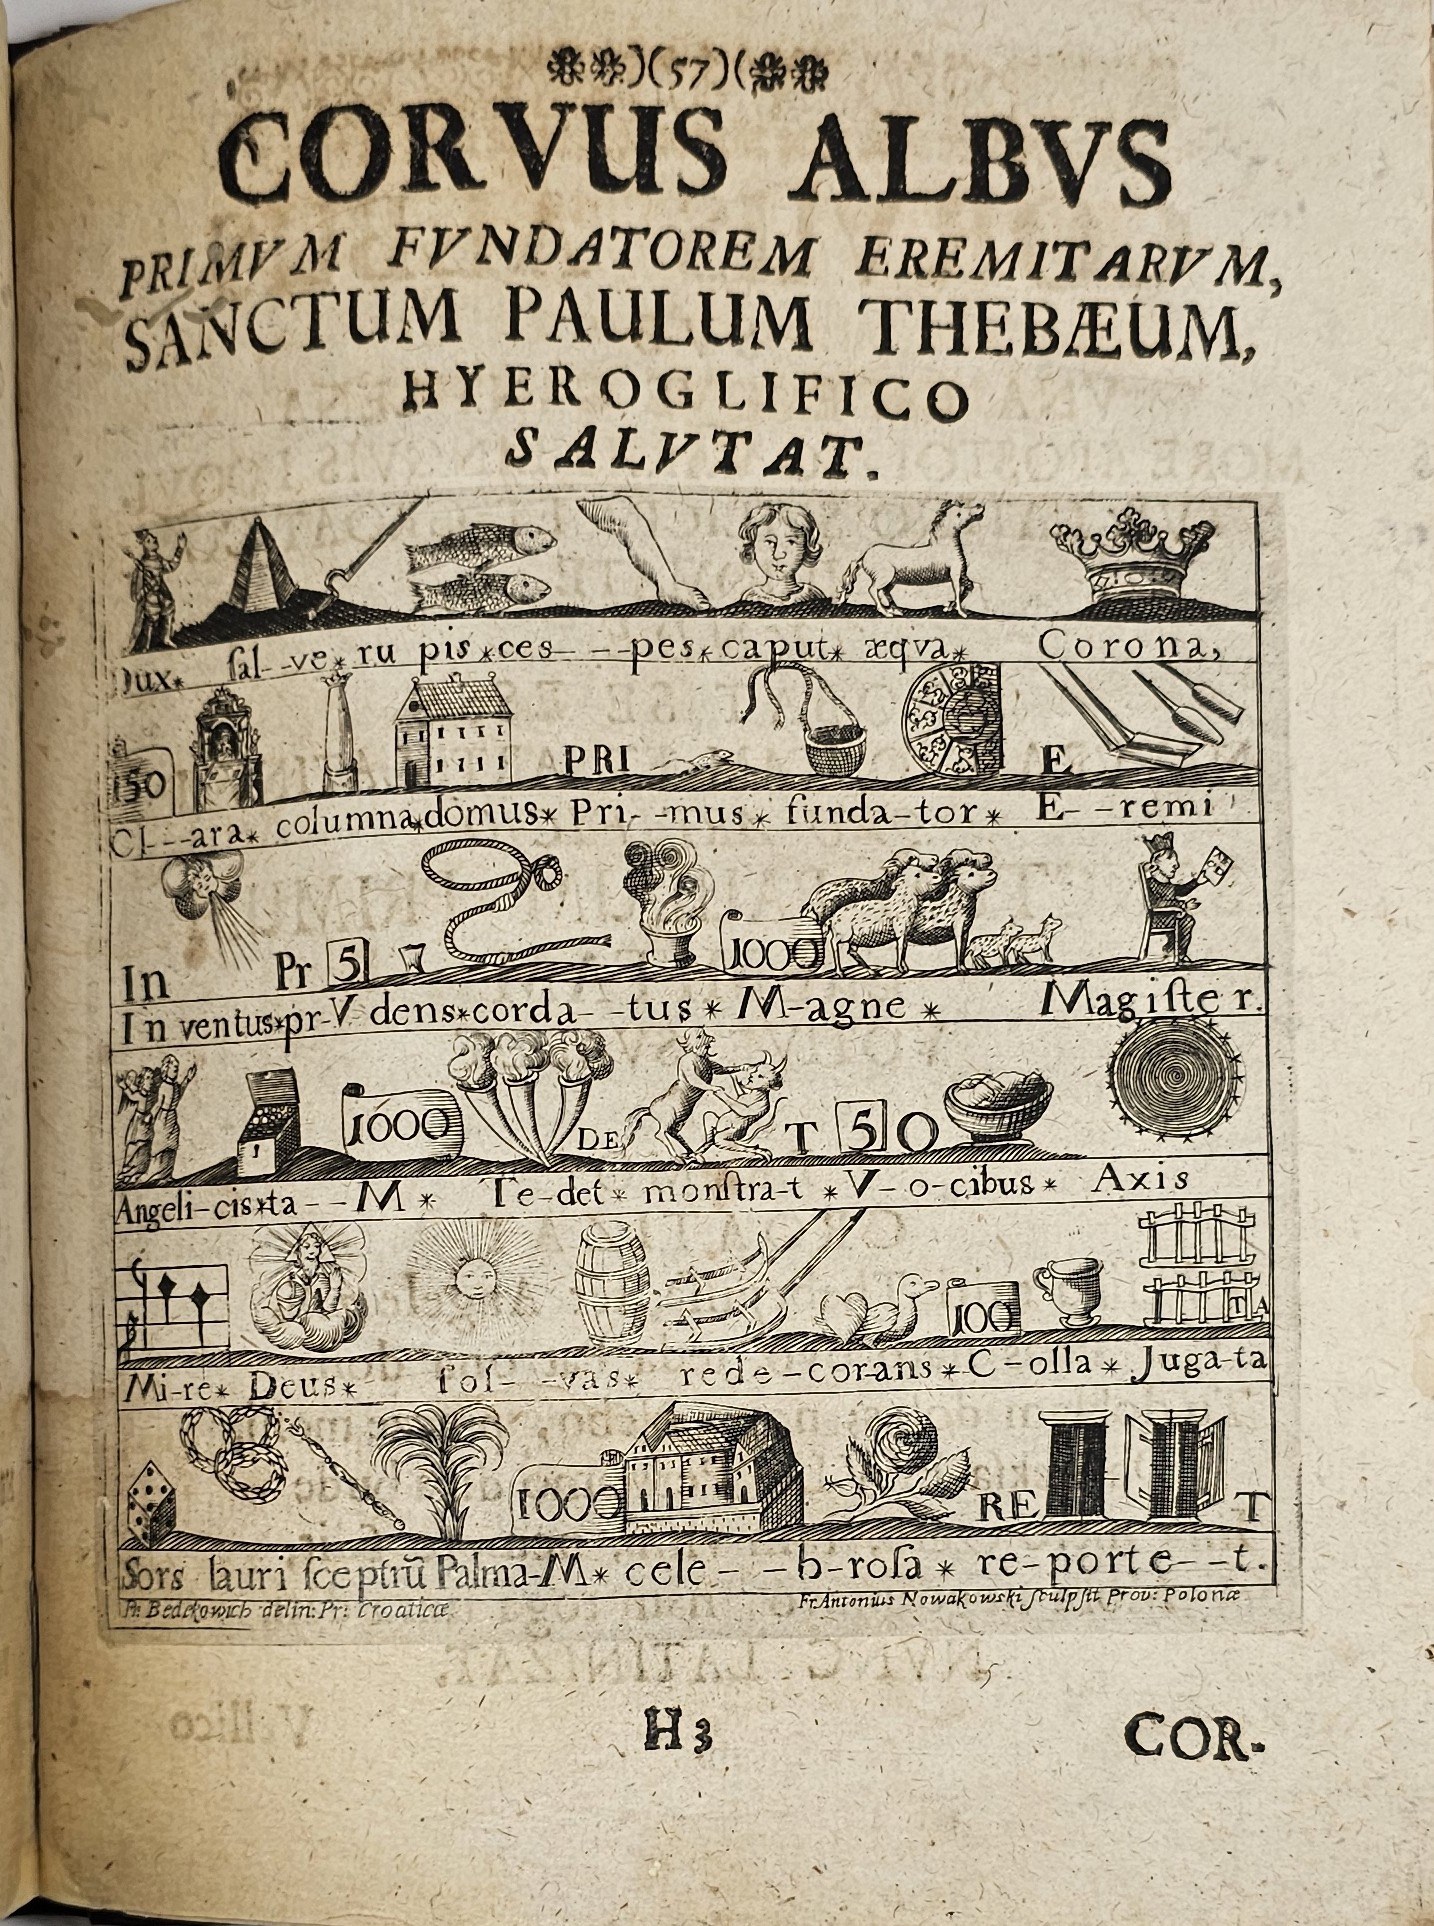 )(57)(
CORVUS ALBVS
PRIMVM FVNDATOREM EREMITARVM,
SANCTUM PAULUM THEBÆUM,
HYEROGLIFICO
SALVTAT.
Dux* ſal--ve*ru pis*ces---pes*caput* æqva* Corona,
150 PRI E
Cl--ara* columna*domus* Pri--mus* funda-tor* E--remi
In Pr 5 1000
In ventus*pr-V dens*corda--tus* M-agne* Magiſter.
1000 DE T 5 O
Angeli-cis*ta--M* Te-det* monſtra-t *V-o-cibus* Axis
100 TA
Mi-re* Deus* ſol--vas* rede-corans*C-olla* Juga-ta
1000 RE T
Sors lauri ſceptrũ Palma-M* cele--b-roſa* re-porte--t.
Bedekowich delin: Pr: Croaticæ Fr Antonius Nowakowski ſculpſit Prov: Polonæ
H3 COR-